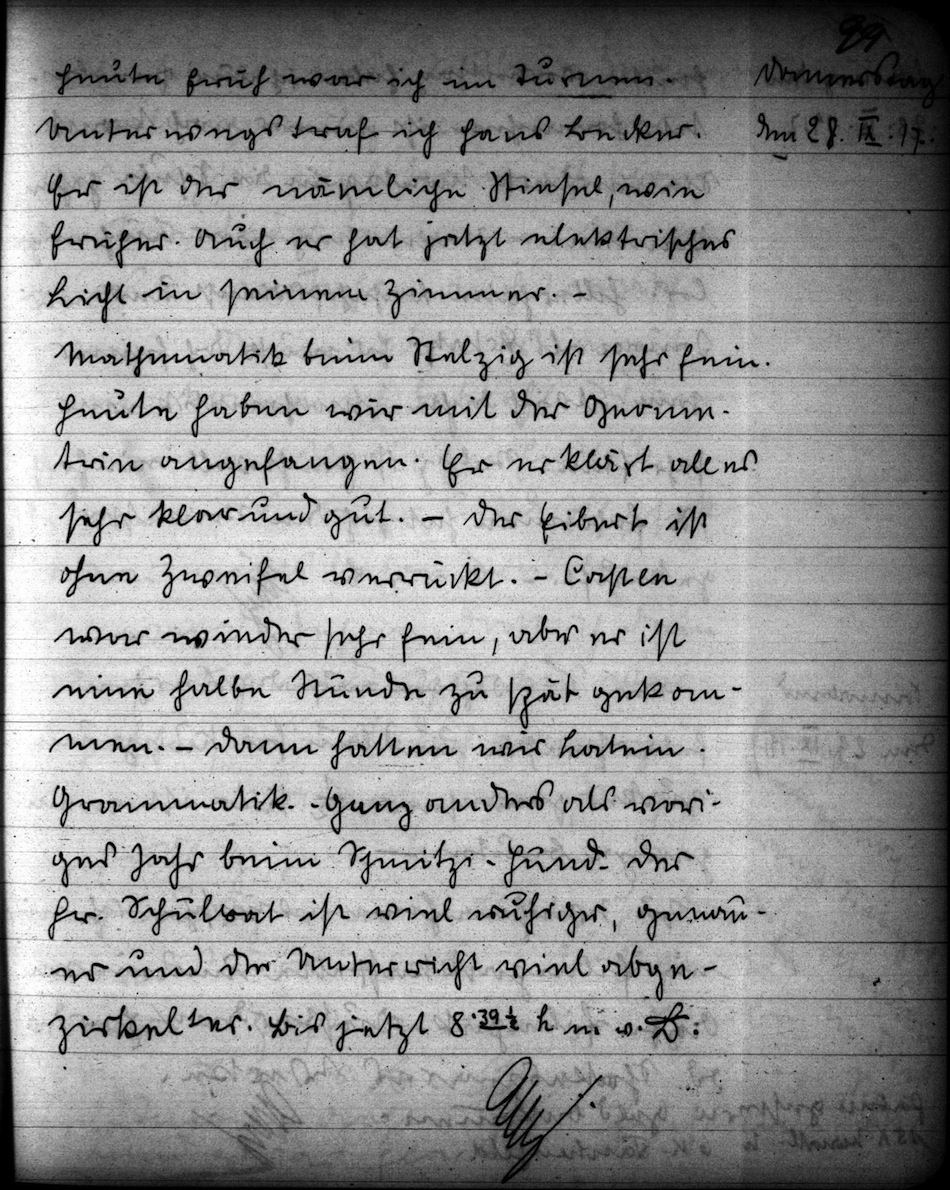 99
Donnerstag
den 28. IX. 17.
Heute früh war ich im Turnen.
Unterwegs traf ich Hans Becker.
Er ist der nämliche Stiesel, wie
früher. Auch er hat jetzt elektrisches
Licht in seinem Zimmer. -
Mathematik beim Stelzig ist sehr fein.
Heute haben wir mit der Geome-
trie angefangen. Er erklärt alles
sehr klar und gut. - Der Eibert ist
ohne Zweifel verrückt. - Casten
war wieder sehr fein, aber er ist
eine halbe Stunde zu spät gekom-
men. - Dann hatten wir Latein.
Grammatik. - Ganz anders als vori-
ges Jahr beim Schmitzi-Hund. Der
Hr. Schulrat ist viel ruhiger, genau-
er und der Unterricht viel abge-
zirkelter. Bis jetzt 8.39 ½ h n. v. B: